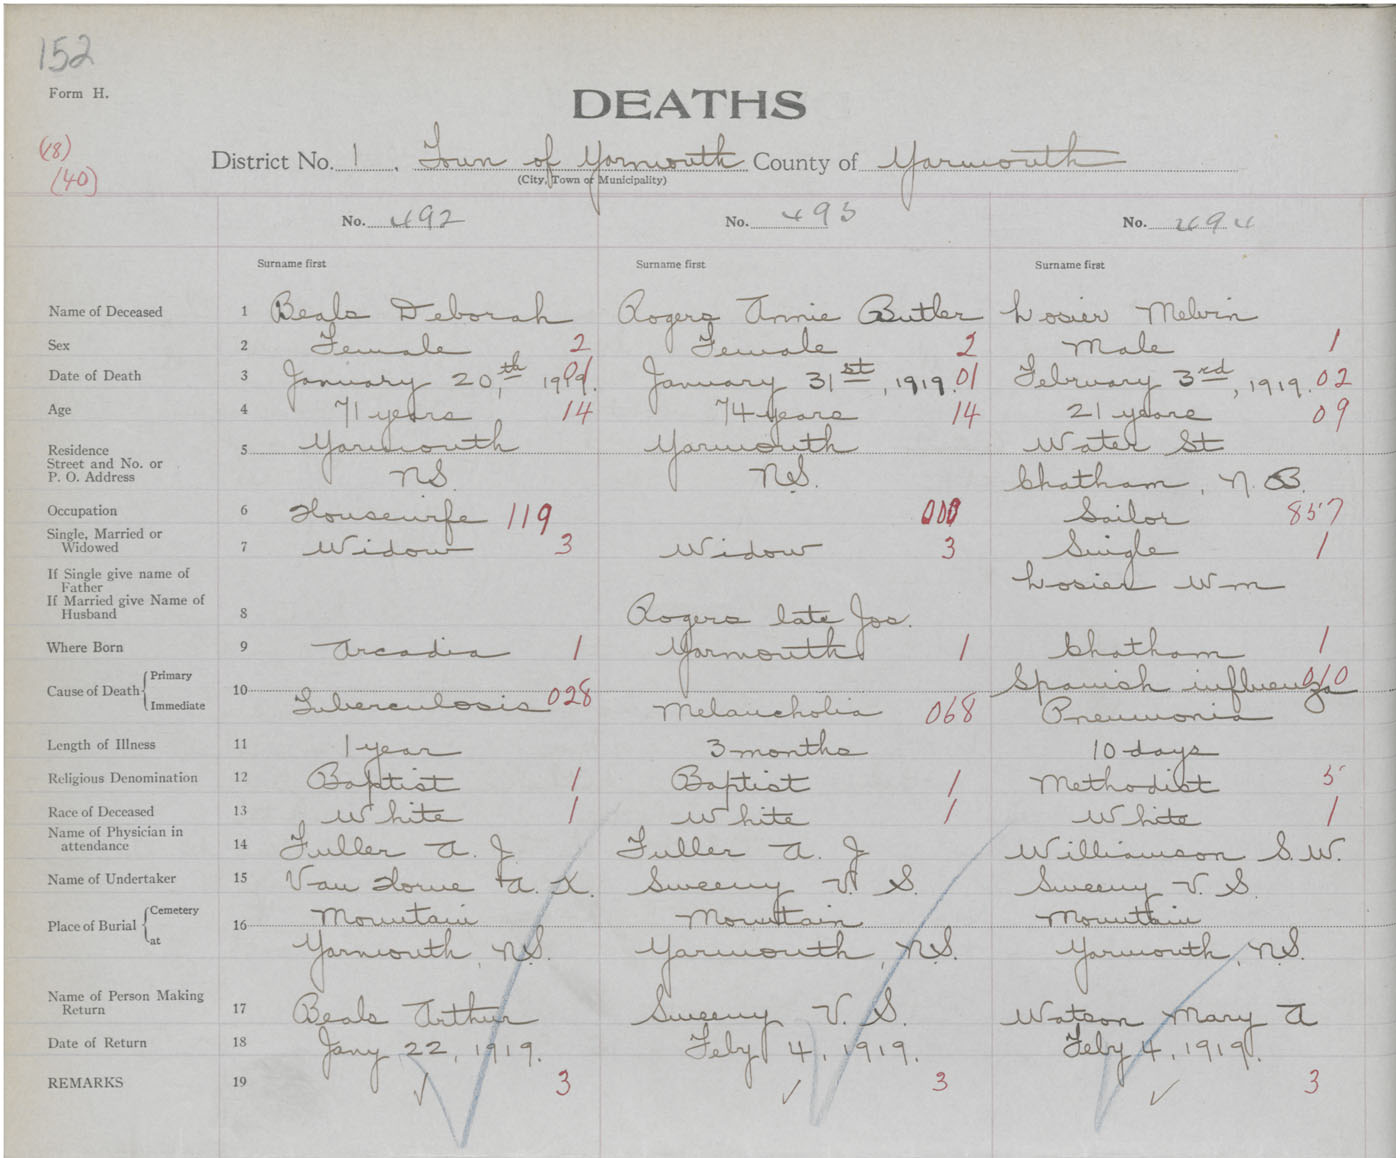 152
Form H.
DEATHS
(18)
(40)
District No. 1. Town of Yarmouth County of Yarmouth
(City, Town or Municipality)
No. 492 No. 493 No. 494
Surname first Surname first Surname first
Name of Deceased 1 Beals Deborah Rogers Annie Butler Losier Melvin
Sex 2 Female 2 Female 2 Male 1
Date of Death 3 January 20,th 1919. 01 January 31st, 1919. 01 February 3rd, 1919. 02
Age 4 71 years 14 74 years 14 21 years 09
Residence
Street and No. or
P. O. Address
5 Yarmouth Yarmouth Water St
N.S. N.S. Chatham, N.B.
Occupation 6 Housewife 119 000 Sailor 857
Single, Married or
Widowed 7 Widow 3 Widow 3 Single 1
If Single give name of
Father Losier Wm
If Married give Name of
Husband 8 Rogers late Jos.
Where Born 9 Arcadia 1 Yarmouth 1 Chatham 1
Cause of Death { Primary Spanish influenza 010
10
Immediate Tuberculosis 028 Melancholia 068 Pneumonia
Length of Illness 11 1 year 3 months 10 days
Religious Denomination 12 Baptist 1 Baptist 1 Methodist 5
Race of Deceased 13 White 1 White 1 White 1
Name of Physician in
attendance 14 Fuller A. J. Fuller A. J Williamson S.W.
Name of Undertaker 15 Van Horne A. K. Sweeny V. S. Sweeny V. S.
Place of Burial { Cemetery 16 Mountain Mountain Mountain
at Yarmouth, N.S. Yarmouth, N.S. Yarmouth, N.S.
Name of Person Making
Return 17 Beals Arthur Sweeny V. S. Watson Mary A
Date of Return 18 Jany 22, 1919. Feby 4, 1919. Feby 4, 1919.
REMARKS 19 ✓ 3 ✓ 3 ✓ 3